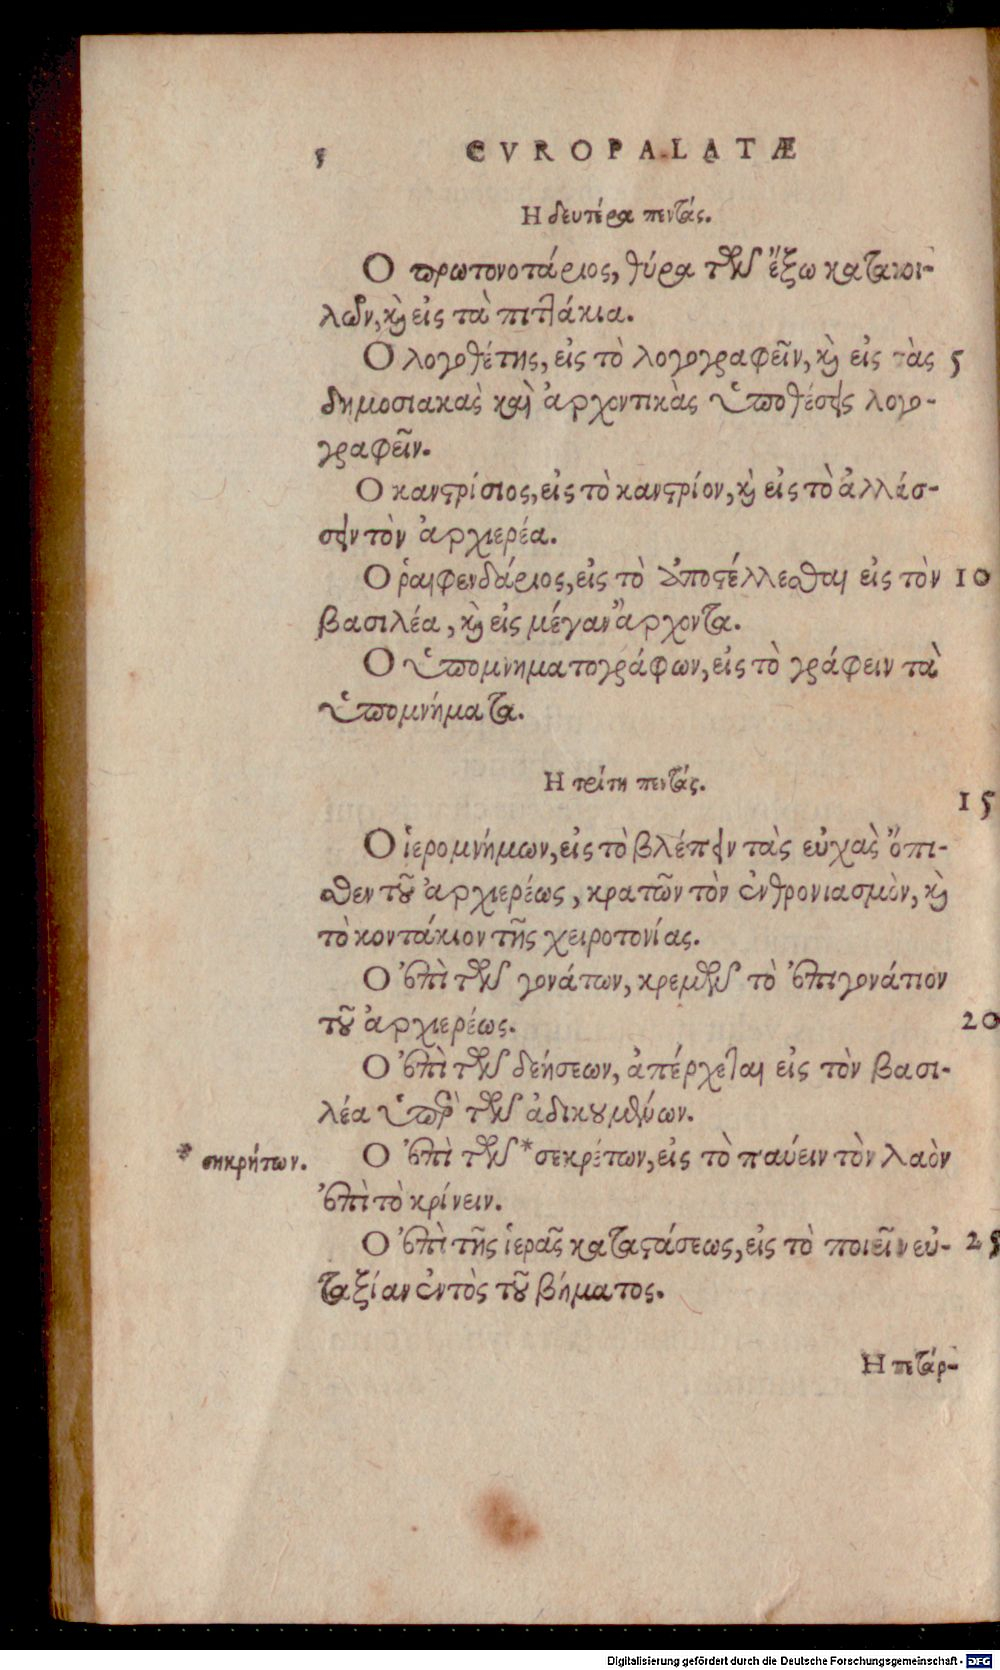 ς CVROPALATÆ
Η δευτέρα πεντάς.
Ο πρωτονοτάριος, θύρα τῶν ἔξω κατακοι-
λῶν, καὶ εἰς τὰ πιττάκια.
Ὁ λογοθέτης, εἰς τὸ λογογραφεῖν, καὶ εἰς τὰς 5
δημοσιακὰς καὶ ἀρχοντικὰς ὑποθέσεις λογο-
γραφεῖν.
Ο κανστρίσιος, εἰς τὸ κανστρίον, καὶ εἰς τὸ ἀλλάσ-
σειν τὸν ἀρχιερέα.
Ο ῥαιφενδάριος, εἰς τὸ ἀποστέλλεσθαι εἰς τὸν 10
βασιλέα, καὶ εἰς μέγαν ἄρχοντα.
Ο ὑπομνηματογράφων, εἰς τὸ γράφειν τὰ
ὑπομνήματα.
Η τρίτη πεντάς.
15
Ο ἱερομνήμων, εἰς τὸ βλέπειν τὰς εὐχὰς ὄπι-
σθεν τοῦ ἀρχιερέως, κρατῶν τὸν ἐνθρονιασμὸν, καὶ
τὸ κοντάκιον τῆς χειροτονίας.
Ο ἐπὶ τῶν γονάτων, κρεμῶν τὸ ἐπιγονάτιον
τοῦ ἀρχιερέως. 20
Ο ἐπὶ τῶν δεήσεων, ἀπέρχεται εἰς τὸν βασι-
λέα ὑπὲρ τῶν ἀδικουμένων.
* σηκρήτων. Ο ἐπὶ τῶν * σεκρέτων, εἰς τὸ παύειν τὸν λαὸν
ἐπὶ τὸ κρίνειν.
Ο ἐπὶ τῆς ἱερᾶς καταστάσεως, εἰς τὸ ποιεῖν εὐ- 25
ταξίαν ἐντὸς τοῦ βήματος.
Η πετάρ-
Digitalisierung gefördert durch die Deutsche Forschungsgemeinschaft - DFG